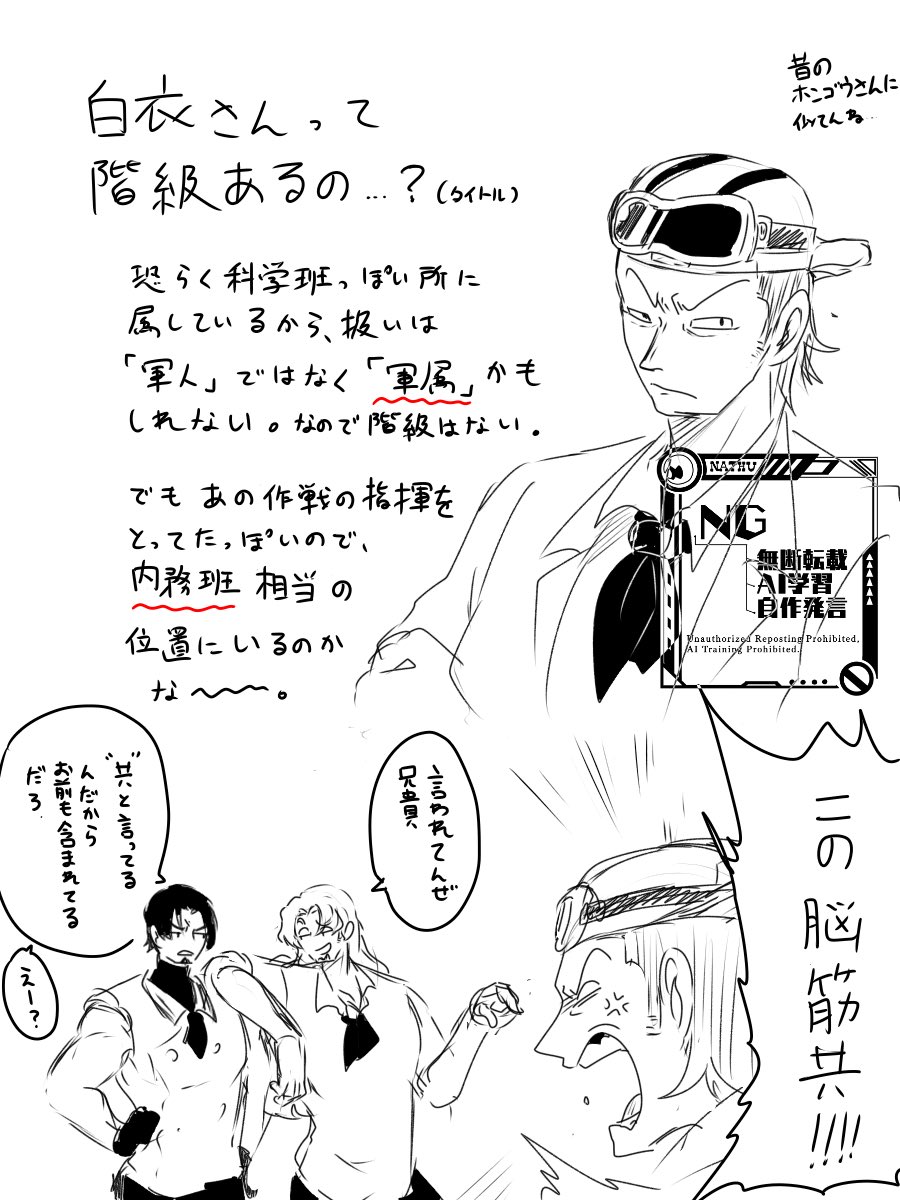 白衣さんって
階級あるの…？(タイトル)
昔の
ホンゴウさんに
似てんね…
恐らく科学班っぽい所に
属しているから、扱いは
「軍人」ではなく「軍属」かも
しれない。なので階級はない。
でもあの作戦の指揮を
とってたっぽいので、
内務班相当の
位置にいるのか
な〜〜。
NATHU
NG
無断転載
AI学習
自作発言
Unauthorized Reposting Prohibited,
AI Training Prohibited.
この脳筋共!!!!
言われてんぜ
兄貴
"共"と言ってる
んだから
お前も含まれてる
だろ
えー？